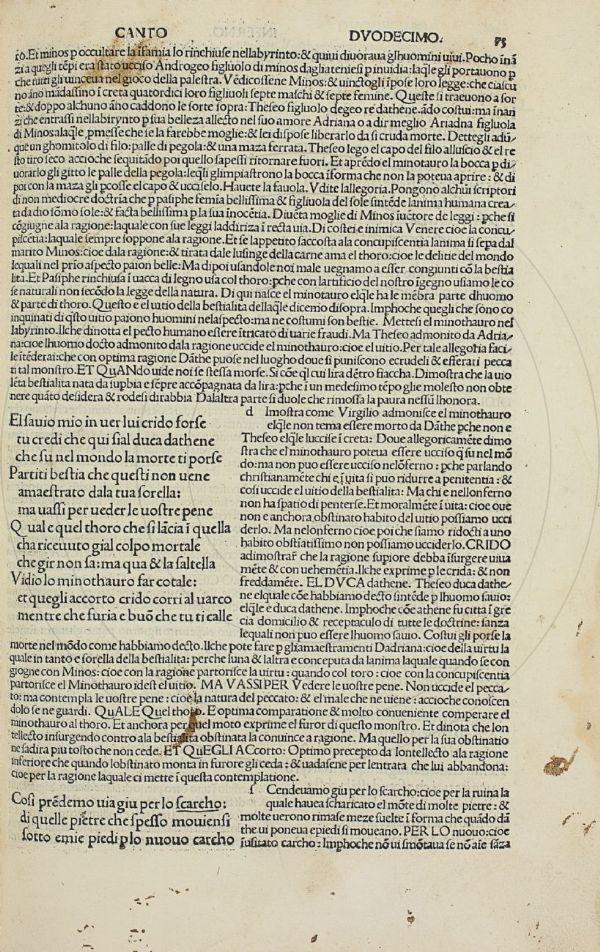 CANTO DVODECIMO. 75
to. Et minos p occultare la ĩfamia lo rinchiuse nellabyrinto: & quiui diuoraua glhuomini uiui. Pocho ĩnã
zi a quegli tẽpi era stato ucciso Androgeo figliuolo di minos dagliateniesi p inuidia: laqle gli portauono p
che tutti gli uinceua nel gioco della palestra. Vẽdicossene Minos: & uinctogli ĩpose loro legge: che ciascu
no ãno mãdassino ĩ creta quatordici loro figliuoli septe maschi & septe femine. Queste si traeuono a for
te: & doppo alchuno ãno caddono le sorte sopra: Theseo figliuolo degeo re dathene. ãdo costui: ma ĩnaz
zi che entrassi nellabirynto p sua belleza allecto nel suo amore Adriana o a dir meglio Ariadna figluola
di Minos alaqle, pmesse che se la farebbe moglie: & lei dispose liberarlo da si cruda morte. Dettegli adũ
que un ghomitolo di filo: palle di pegola: & una maza ferrata. Theseo lego el capo del filo alluscio & el re
sto tiro seco accioche sequitãdo poi quello sapessi ritornare fuori. Et aprẽdo el minotauro la bocca p di
uorarlo gli gitto le palle della pegola: leqli glimpiastrono la bocca ĩforma che non la poteua aprire: & di
poi con la maza gli pcosse el capo & ucciselo. Hauete la fauola. Vdite lallegoria. Pongono alchũi scriptori
di non mediocre doctria che p pasiphe femĩa bellissima & figluola del sole sintẽde lanima humana crea
ta da dio sõmo sole: & facta bellissima p la sua inocẽtia. Diuẽta moglie di Minos ĩuẽtore de leggi: pche si
cõgiugne ala ragione: laquale con sue leggi laddiriza ĩ recta uia. Di costei e inimica Venere cioe la concu
piscẽtia: laquale sempre soppone ala ragione. Et se lappetito saccosta ala concupiscentia lanima si sepa dal
marito Minos: cioe dala ragione: & tirata dale lusinge della carne ama el thoro: cioe le delitie del mondo
lequali nel prio aspecto paion belle: Ma dipoi usandole noi male uegnamo a esser congiunti cõ la bestia
lita. Et Pasiphe rinchiusa ĩ uacca di legno usa col thoro: pche con lartificio del nostro ĩgegno usiamo le co
se naturali non secõdo la legge della natura. Di qui nasce el minotauro elqle ha le mẽbra parte dhuomo
& parte di thoro. Questo e el uitio della bestialita dellaqle dicemo disopra. Imphoche quegli che sono co
inquinati di qsto uitio paiono huomini nelaspecto: ma ne costumi son bestie. Mettesi el minotauro nel
labyrinto. Ilche dinotta el pecto humano essere ĩtricato di uarie fraudi. Ma Theseo admonito da Adria
na: cioe lhuomo docto admonito dala ragione uccide el minotauro: cioe el uitio. Per tale allegoria faci
le ĩtẽderai: che con optima ragione Dãthe puose nel luogho doue si puniscono ecrudeli & efferati pecca
ti tal monstro. ET QuANdo uide noi se stessa morse. Si cõe ql cui lira dẽtro fiaccha. Dimostra che la uio
lẽta bestialita nata da supbia e sẽpre accõpagnata da lira: pche ĩ un medesimo tẽpo glie molesto non obte
nere quãto desidera & rodesi dirabbia Dalaltra parte si duole che rimossa la paura nessũ lhonora.
El sauio mio in uer lui crido forse
tu credi che qui sial duca dathene
che su nel mondo la morte ti porse
Partiti bestia che questi non uene
amaestrato dala tua sorella:
ma uassi per ueder le uostre pene
Qual e quel thoro che si lãcia ĩ quella
cha riceuuto gial colpo mortale
che gir non sa: ma qua & la saltella
Vidio lo minothauro far cotale:
et quegli accorto crido corri al uarco
mentre che furia e buõ che tu ti calle
d Imostra come Virgilio admonisce el minothauro
elqle non tema essere morto da Dãthe pche non e
Theseo elqle luccise ĩ creta: Doue allegoricamẽte dimo
stra che el minothauro poteua essere ucciso q su nel mõ
do: ma non puo essere ucciso nelõferno: pche parlando
christianamẽte chi e ĩ uita si puo ridurre a penitentia: &
cosi uccide el uitio della bestialita: Ma chi e nellonferno
non ha spatio di penterse. Et moralmẽte ĩ uita: cioe oue
non e anchora obstinato habito del uitio possiamo ucci
derlo. Ma nelonferno cioe poi che siamo ridocti a uno
habito obstiatissimo non possiamo ucciderlo. CRIDO
adimostrar̃ che la ragione supiore debba ĩsurgere uiua
mẽte & con uehemẽtia. Ilche exprime p le crida: & non
freddamẽte. EL DVCA dathene. Theseo duca dathe
ne elquale cõe habbiamo decto sintẽde p lhuomo sauio:
elqle e duca dathene. Imphoche cõe athene fu citta ĩ gre
cia domicilio & receptaculo di tutte le doctrine: sanza
lequali non puo essere lhuomo sauio. Costui gli porse la
morte nel mõdo come habbiamo decto. Ilche pote fare p gliamaestramenti Dadriana: cioe della uirtu la
quale in tanto e sorella della bestialita: perche luna & laltra e conceputa da lanima laquale quando se con
giogne con Minos: cioe con la ragione partorisce la uirtu: quando col toro: cioe con la concupiscentia
partorisce el Minothauro idest el uitio. MA VASSI PER Vedere le uostre pene. Non uccide el pecca
to: ma contempla le uostre pene: cioe la natura del peccato: & el male che ne uiene: accioche conoscen
dolo se ne guardi. QuALE Quel thoro. E optima comparatione & molto conueniente comperare el
minothauro al thoro. Et anchora per quel moto exprime el furor di questo monstro. Et dinota che lon
tellecto insurgendo contro ala bestialita obstinata la conuince a ragione. Ma quello per la sua obstinatio
ne sadira piu tosto che non cede. ET QuEGLI ACcorto: Optimo precepto da lontellecto ala ragione
inferiore che quando lobstinato monta in furore gli ceda: & uadasene per lentrata che lui abbandona:
cioe per la ragione laquale ci mette ĩ questa contemplatione.
Cosi prẽdemo uia giu per lo scarcho:
di quelle pietre che spesso mouiensi
sotto emie piedi p lo nuouo carcho
f Cendeuamo giu per lo scarcho: cioe per la ruina la
quale hauea scharicato el mõte di molte pietre: &
molte uerono rimase meze suelte ĩ forma che quãdo dã
the ui poneua epiedi si moueano. PER LO nuouo: cioe
ĩusitato carcho: Imphoche nõ ui smõtaua se nõ aĩe sãza